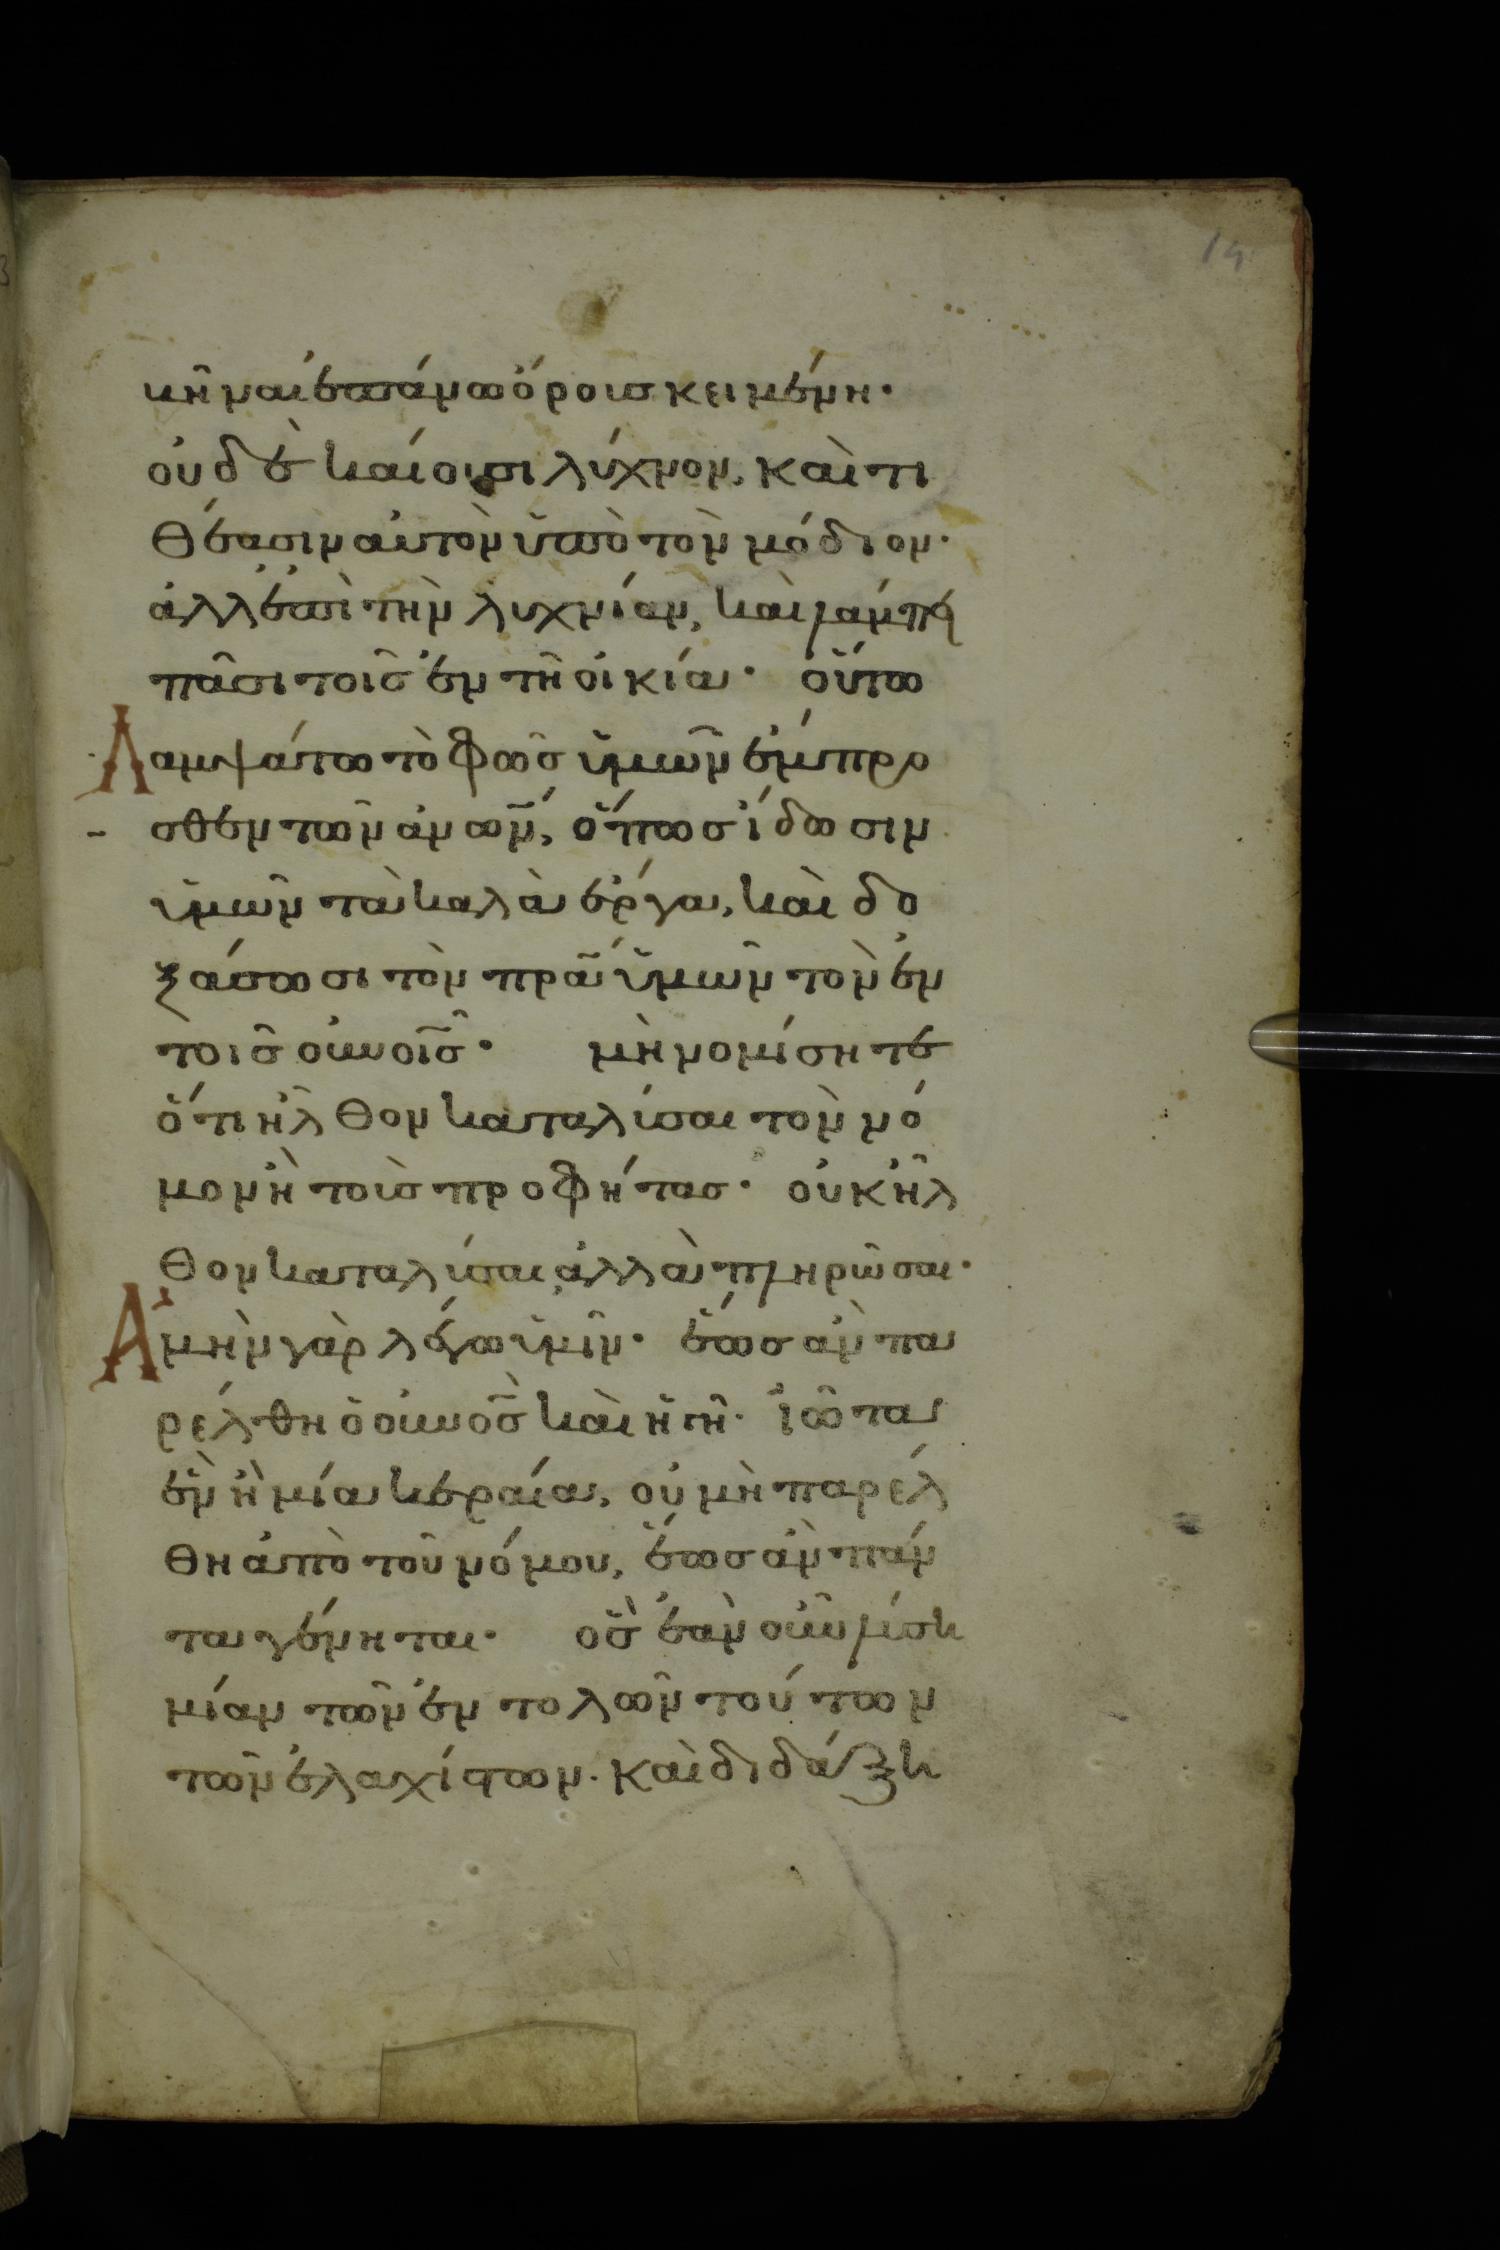 14
κῆναι ἐπάνω ὄρους κειμένη·
οὐδὲ καίουσι λύχνον, καὶ τι
θέασιν αὐτὸν ὑπὸ τὸν μόδιον·
ἀλλ ἐπὶ τὴν λυχνίαν, καὶ λάμπει
πᾶσι τοῖς ἐν τῆ οἰκία· οὕτω
Λαμψάτω τὸ φῶς ὑμῶν ἔμπρο
σθεν τῶν ἀνῶν, ὅπως ἴδωσιν
ὑμῶν τὰ καλὰ ἔργα, καὶ δο
ξάσωσι τὸν πρα ὑμῶν τὸν ἐν
τοῖς οὐνοῖς· μὴ νομίσητε
ὅτι ἦλθον καταλῦσαι τὸν νό
μον ἢ τοὺς προφήτας· οὐκ ἦλ
θον καταλύσαι, ἀλλὰ πληρῶσαι·
Ἀμὴν γὰρ λέγω ὑμῖν· ἕως ἂν πα
ρέλθη ὁ οὐνος καὶ ἡ γῆ· ἰῶτα
ἓν ἢ μία κεραία, οὐ μὴ παρέλ
θη ἀπὸ τοῦ νόμου, ἕως ἂν πάν
τα γένηται· ὃς ἐὰν οὖν λύση
μίαν τῶν ἐντολῶν τούτων
τῶν ἐλαχίστων. καὶ διδάξη